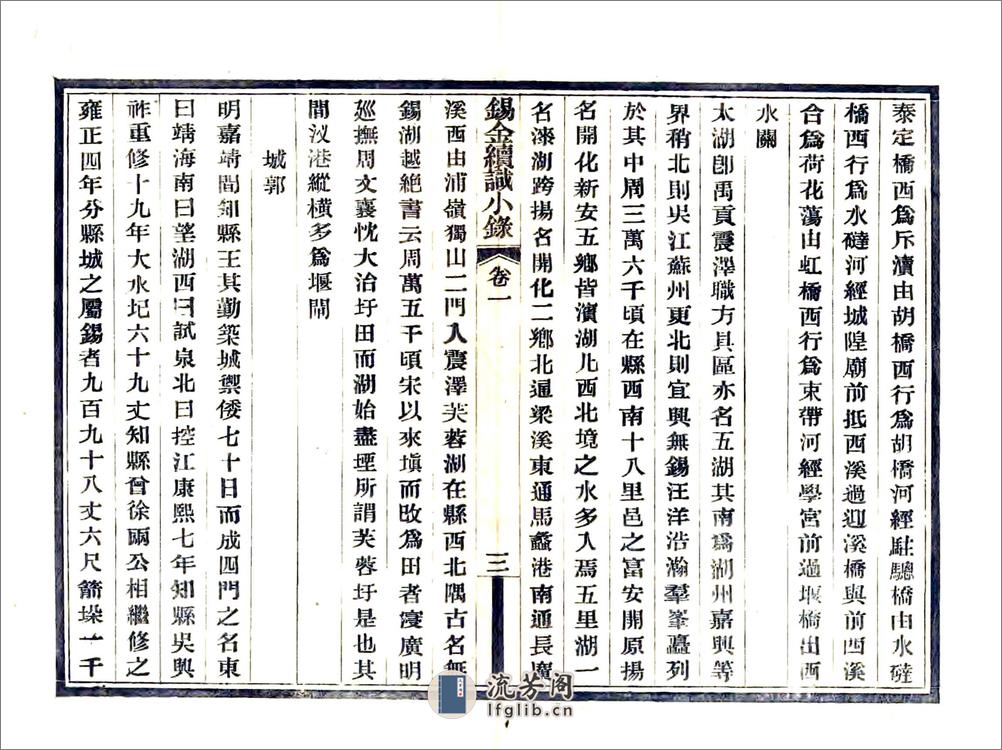 泰定橋西爲斥瀆由胡橋西行爲胡橋河經駐驄橋由水𥗬
橋西行爲水𥗬河經城隍廟前抵西溪過迎溪橋與前西溪
合爲荷花蕩由虹橋西行爲束帶河經學宮前過堰橋出西
水關
太湖卽禹貢震澤職方具區亦名五湖其南爲湖州嘉興等
界稍北則吳江蘇州更北則宜興無錫汪洋浩瀚羣峯矗列
於其中周三萬六千頃在縣西南十八里邑之富安開原揚
名開化新安五鄉皆濱湖凡西北境之水多入焉五里湖一
名漆湖跨揚名開化二鄉北通梁溪東通馬蠡港南通長廣
錫金續識小錄
卷一
三
溪西由浦嶺獨山二門入震澤芙蓉湖在縣西北隅古名無
錫湖越絶書云周萬五千頃宋以來塡而改爲田者寖廣明
廵撫周文襄忱大治圩田而湖始盡堙所謂芙蓉圩是也其
間汊港縱橫多爲堰閘
城郭
明嘉靖間知縣王其勤築城禦倭七十日而成四門之名東
曰靖海南曰望湖西曰試泉北曰控江康熙七年知縣吳興
祚重修十九年大水圮六十九丈知縣曾徐兩公相繼修之
雍正四年分縣城之屬錫者九百九十八丈六尺箭垛一千
流芳阁
lfglib.cn